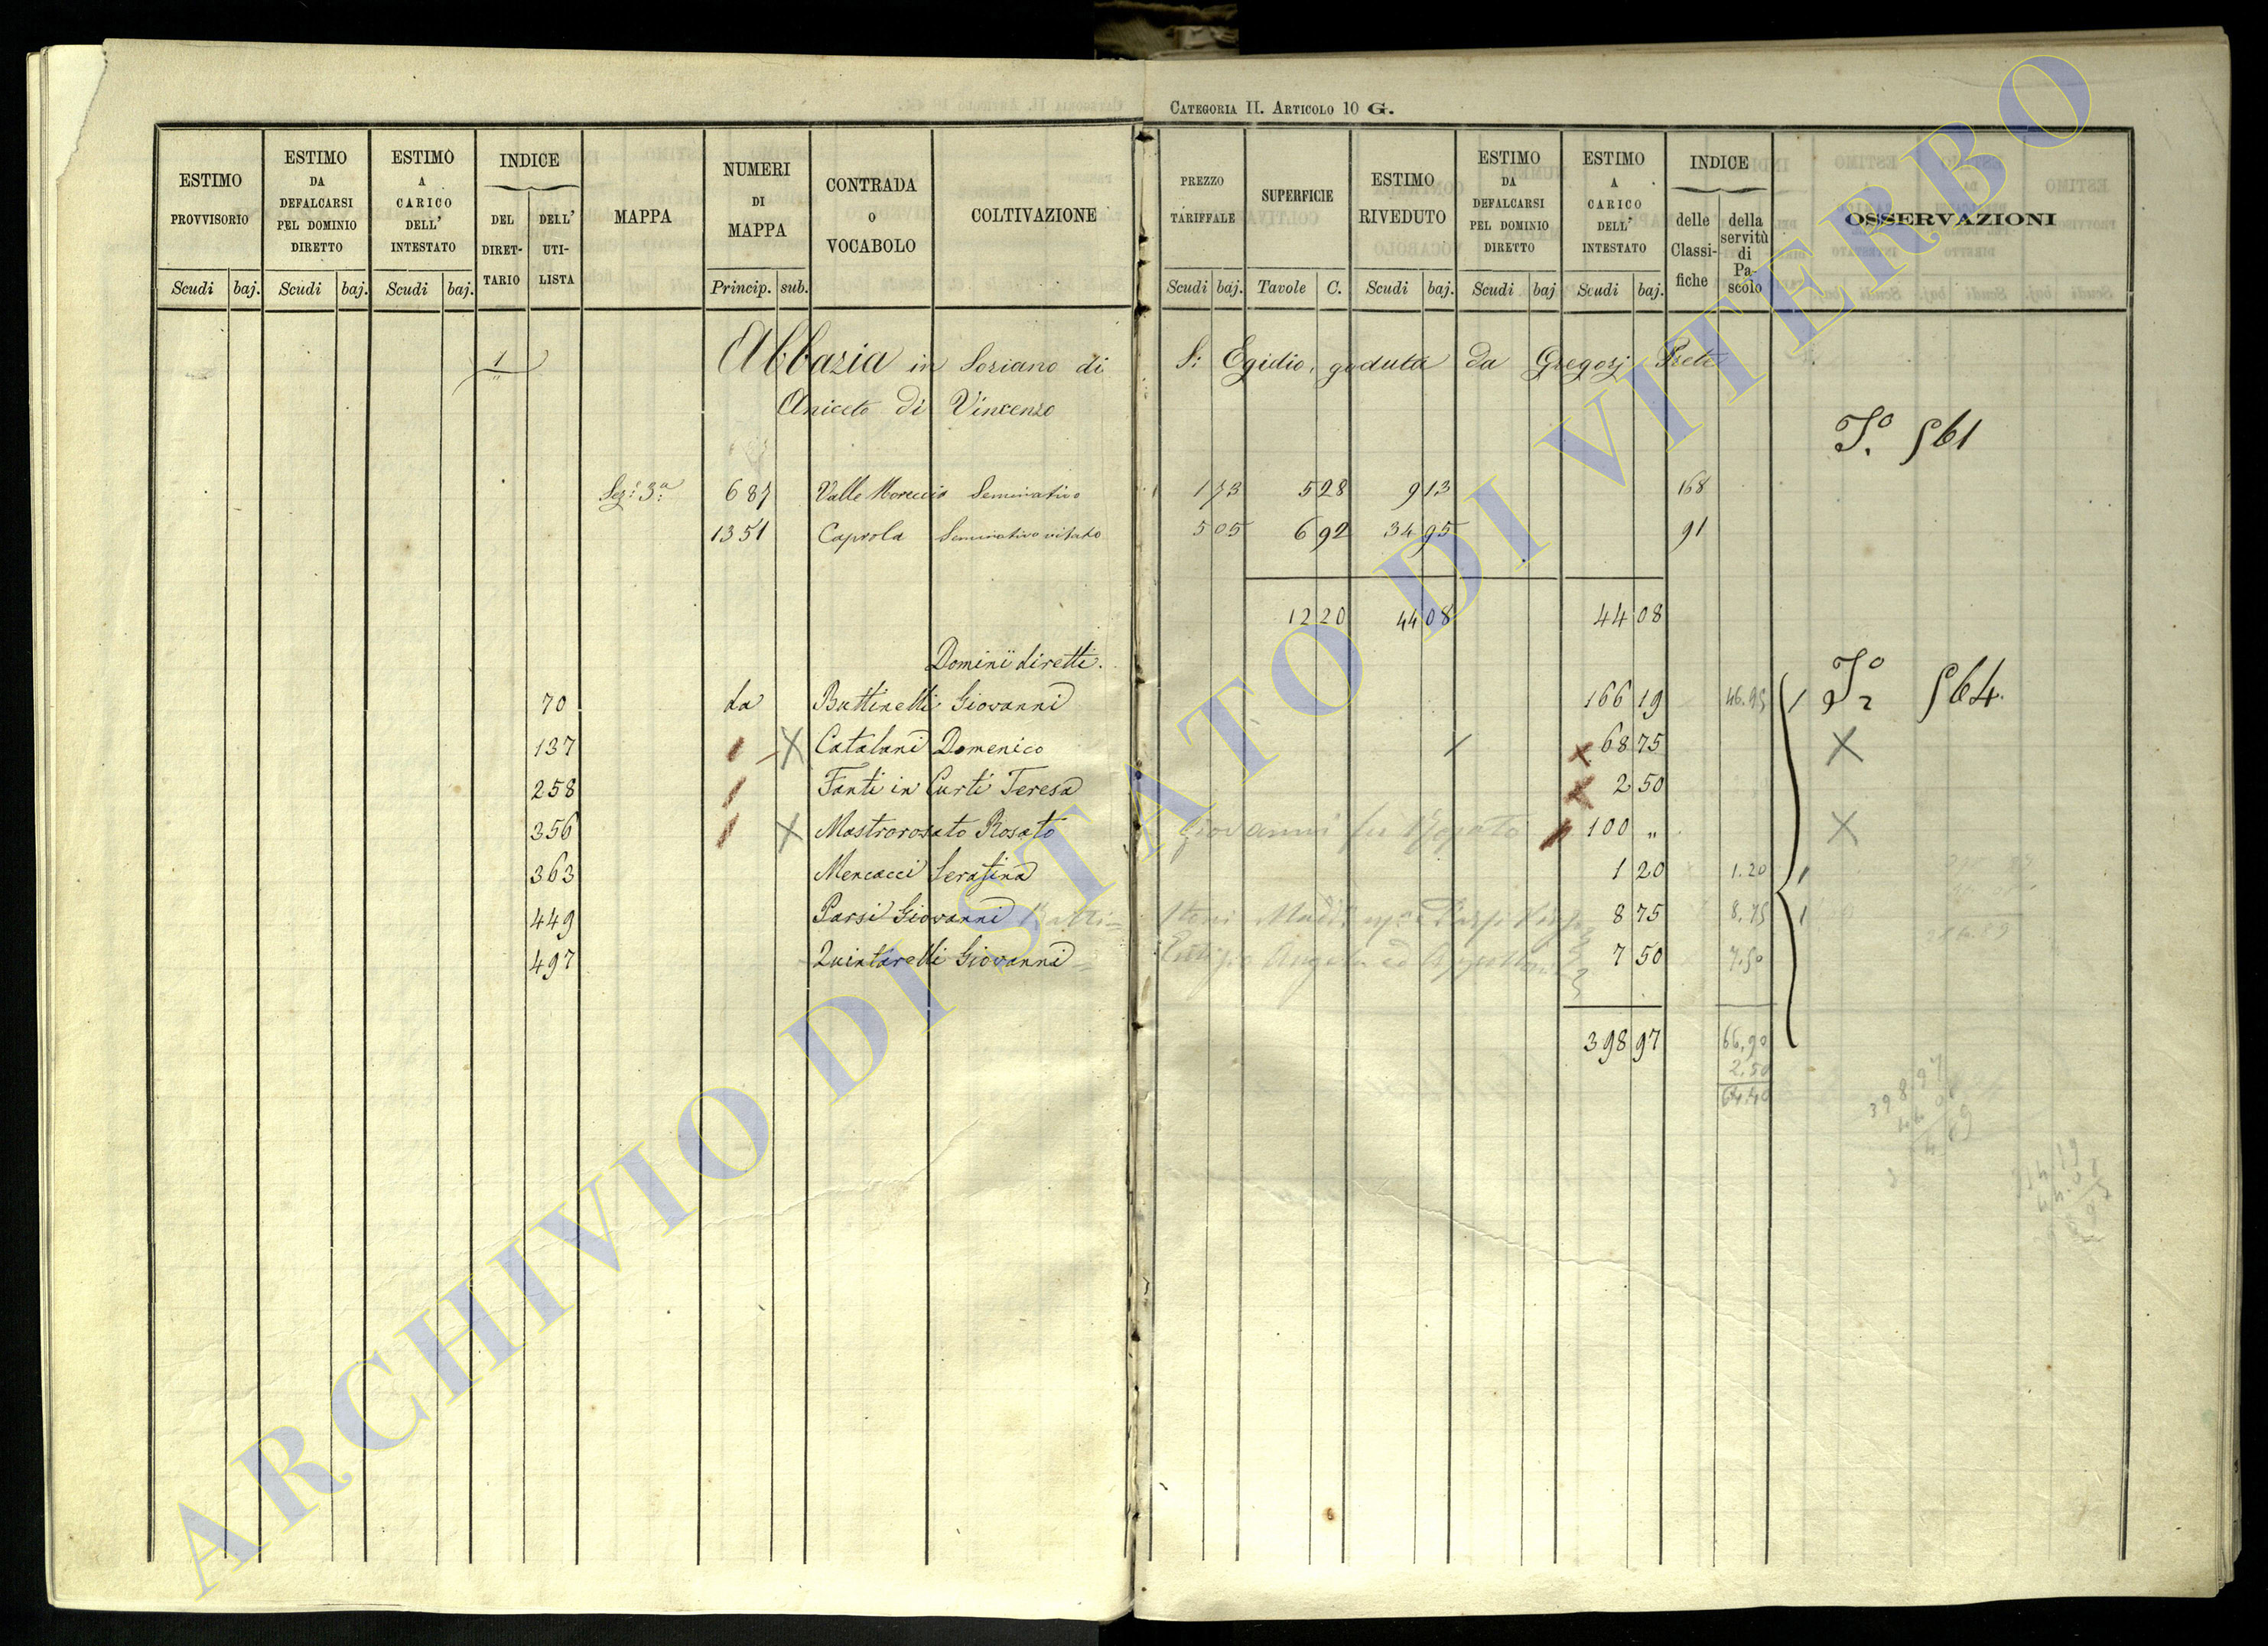 CATEGORIA II. ARTICOLO 10 G.
ESTIMO PROVVISORIO
Scudi baj.
ESTIMO DA DEFALCARSI PEL DOMINIO DIRETTO
Scudi baj.
ESTIMO A CARICO DELL' INTESTATO
Scudi baj.
INDICE
DEL DIRET-TARIO
DELL' UTI-LISTA
MAPPA
NUMERI DI MAPPA
Princip. sub.
CONTRADA O VOCABOLO
COLTIVAZIONE
PREZZO TARIFFALE
Scudi baj.
SUPERFICIE
Tavole C.
ESTIMO RIVEDUTO
Scudi baj.
ESTIMO DA DEFALCARSI PEL DOMINIO DIRETTO
Scudi baj
ESTIMO A CARICO DELL' INTESTATO
Scudi baj.
INDICE
delle Classi-fiche
della servitù di Pa-scolo
OSSERVAZIONI
1 Abbazia in Soriano di S. Egidio, goduta da Gregorj Prete
Aniceto di Vincenzo
T.o 561
Sez: 3a 687 Valle Moreccia Seminativo 1 73 5 28 9 13 168
1351 Caprola Seminativo vitato 5 05 6 92 34 95 91
12 20 44 08 44 08
Dominii diretti.
70 da Buttinelli Giovanni 166 19 46.95 564.
137 X Catalani Domenico X 68 75 X
258 Fanti in Curti Teresa X 2 50
356 X Mastrorosato Rosato Giovanni fu Rosato 100 „ X
363 Mencacci Serafina 1 20 1.20
449 Parsi Giovanni 8 75 8.75
497 Quintarelli Giovanni 7 50 7.50
398 97 66.90
2.50
64.40
398 97
44 08
ARCHIVIO DI STATO DI VITERBO